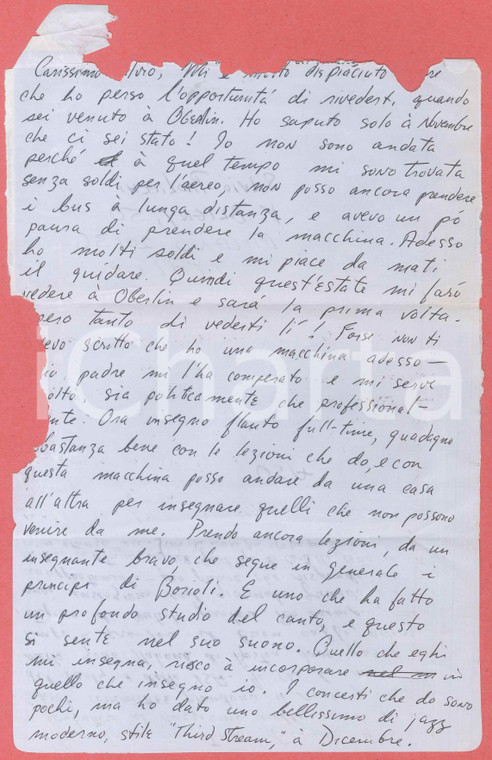 Carissimo dispiaciuto
che ho perso l'opportunitá di rivederti, quando
sei venuto à Oberlin. Ho saputo solo à Novembre
che ci sei stato! Io non sono andata
perché à quel tempo mi sono trovata
senza soldi per l'aereo, non posso ancora prendere
i bus à lunga distanza, e avevo un pó
paura di prendere la macchina. Adesso
ho molti soldi e mi piace da mati
il guidare. Quindi quest'éstate mi faró
vedere à Oberlin e sará la prima volta.
pero tanto di vederti lí! Forse non ti
evo scritto che ho una macchina adesso —
io padre mi l'ha comperato e mi serve
olto, sia politicamente che professional-
ente. Ora insegno flauto full-time, guadagno
bastanza bene con le lezioni che do, e con
questa macchina posso andare da una casa
all'altra per insegnare quelli che non possono
venire da me. Prendo ancora lezioni, da un
insegnante bravo, che segue in generale i
principi di Borioli. E uno che ha fatto
un profondo studio del canto, e questo
si sente nel suo suono. Quello che eghi
mi insegna, riesco à incorporare in
quello che insegno io. I concerti che do sono
pochi, ma ho dato uno bellissimo di jazz
moderno, stile "Third Stream," à Dicembre.
iCharta